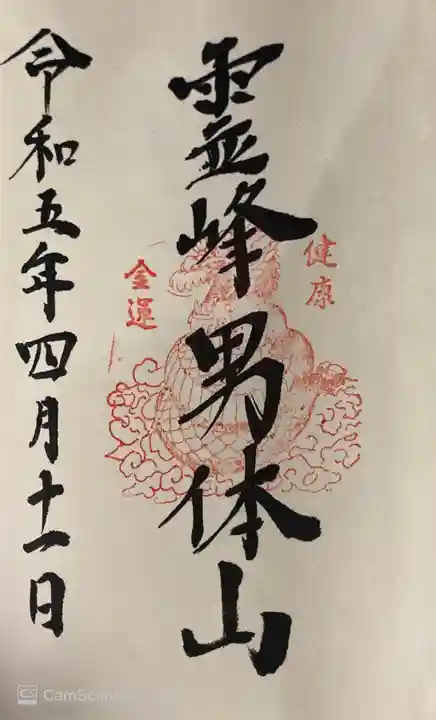 健康
霊峰男体山
金運
令和五年四月十一日
CS CamScanner